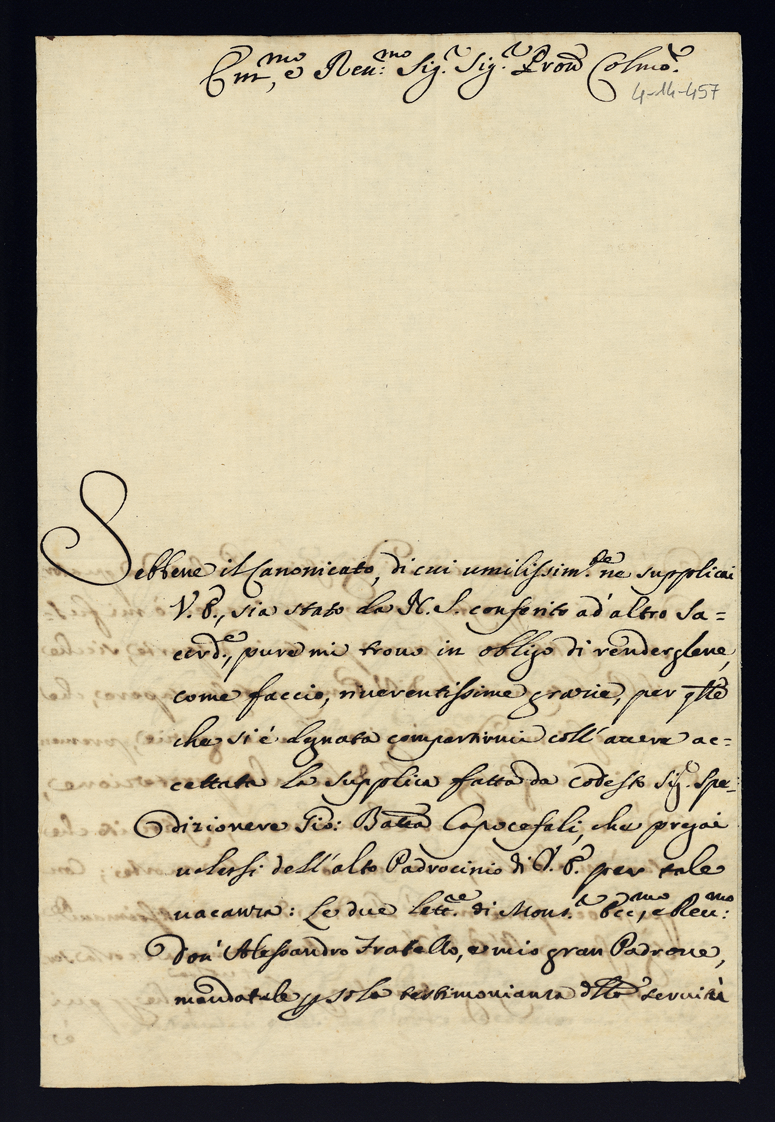 Em.mo, e Reu:mo Sig.r Sig.r Pron Colmo.
4-14-457
Sebbene il Canonicato, di cui umilissim.te ne supplicai
V. E., sia stato da N. S. conferito ad' altro Sa=
cerd.e, pure mi trovo in obligo di renderglene,
come faccio, riverentissime grazie, per qlle
che si è degnata compartirmi coll' avere ac=
cettata la supplica fatta da codesto Sig.r Spe=
dizionere Gio: Batta Capocefali, che pregai
valersi dell' alto Padrocinio di V. E. per tale
vacanza: Le due lett.e di Mons.r Ecc.mo, e Reu:mo
Don' Alessandro Fratello, e mio gran Padrone,
mandatele p sola testimonianza dlla servitù